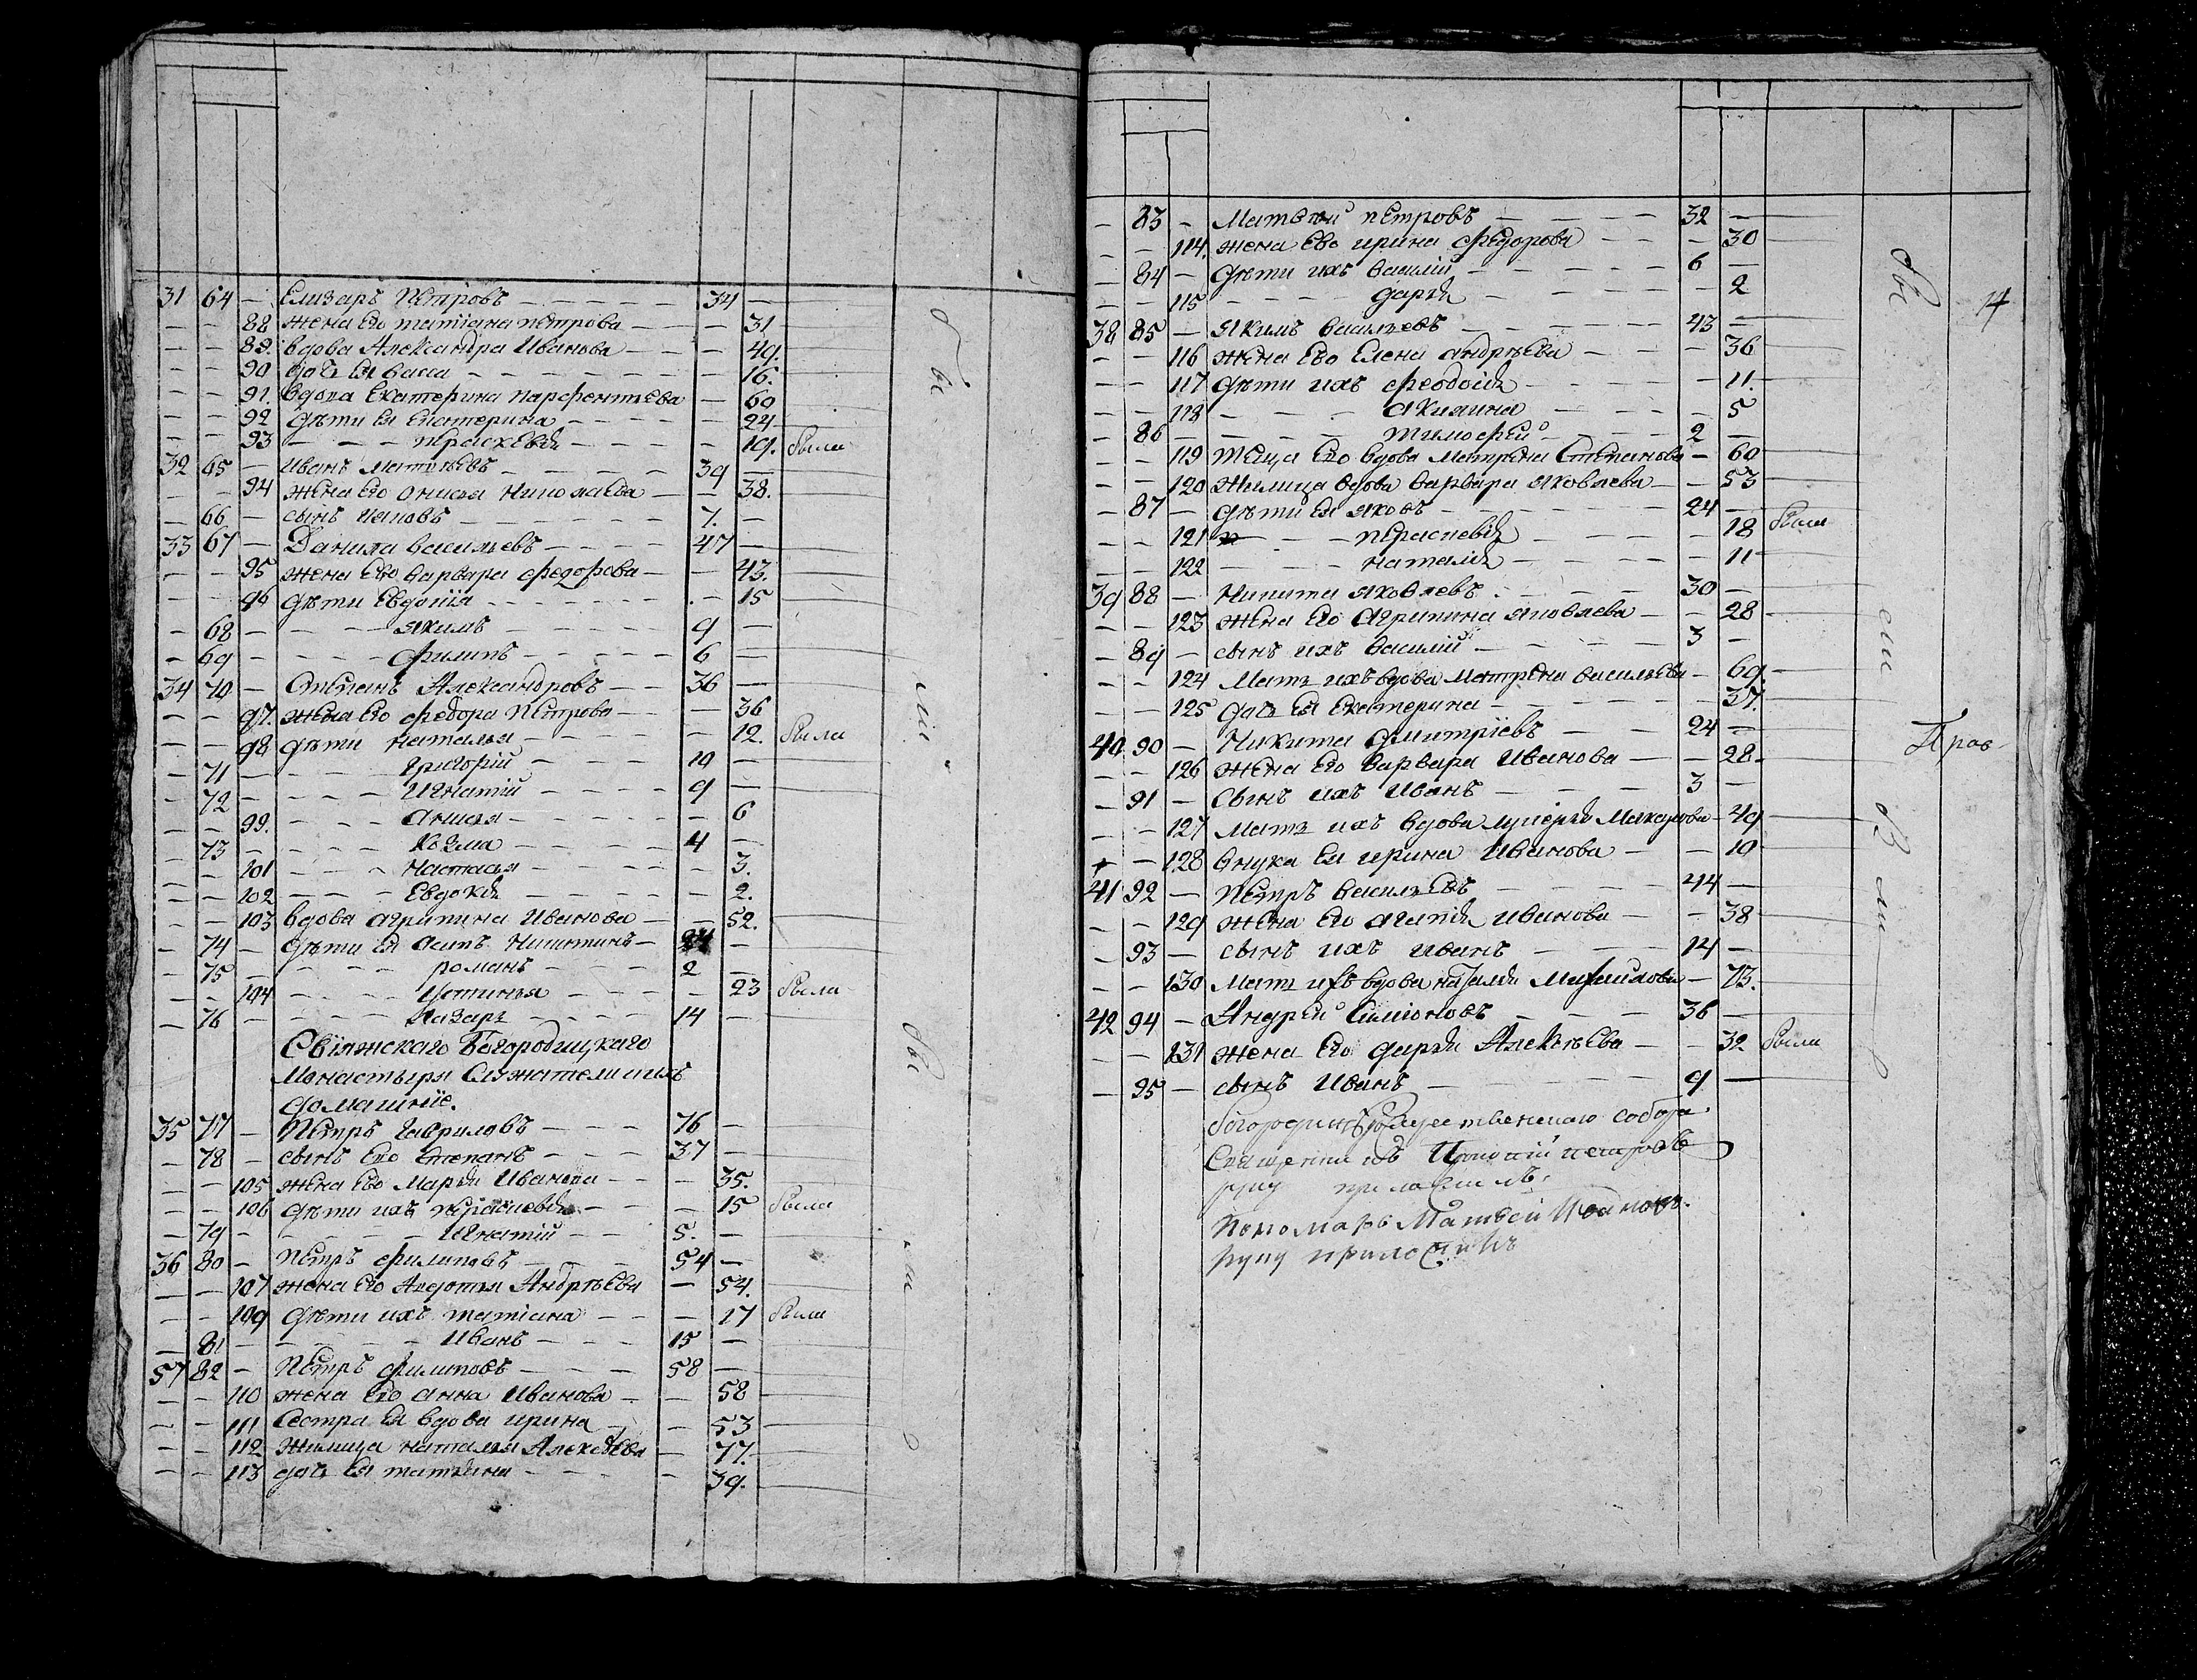 31 64 — Елизаръ Петровъ — 34 —
— — 88 жена ево татiана петрова — — 31
— — 89. вдова Александра Иванова — — 49.
— — 90 дочь ея васса — — 16.
— — 91. вдова Екатерина парфентьева — 60
— — 92 дѣти ея Екатерина — — 24
— — 93 — — — праскевiя — — 19. были
32 65 — Иванъ матвѣевъ — 39 —
— — 94 жена ево Онисья Николаева — — 38.
— 66 — сынъ Иаковъ — 7. —
33 67 — Данила васильевъ — 47 —
— — 95 жена ево варвара федорова — — 43.
— — 96 дѣти Евдокiя — — 15
— 68 — — — якимъ — 9 —
— 69 — — — филипъ — 6 —
34 70 — Степанъ Александровъ — 36 —
— — 97. жена ево федора Петрова — — 36
— — 98 дѣти наталья — — 12. были
— 71 — — — григорiй — 10 —
— 72 — — — Игнатiй — 9 —
— — 99. — — — Анисья — — 6
— 73 — — — козма — 4 —
— — 101 — — — настасья — — 3.
— — 102 — — — Евдокiя — — 2.
— — 103 вдова агрипина Иванова — — 52.
— 74 — дѣти ея Никитинъ — 24 —
— 75 — — — романъ — 2 —
— — 104 — — — Устинья — — 23 были
— 76 — — — лазарь — 14 —
Свiяжскаго Богородицкаго
Монастыря Служительскихъ
домашнiе.
35 77 — Петръ гавриловъ — 76 —
— 78 — сынъ ево степанъ — 37 —
— — 105 жена ево Марья Иванова — — 35.
— — 106 дѣти ихъ праскевiя — — 15 были
— 79 — — — Игнатiй — 5. —
36 80 — Петръ филиповъ — 54 —
— — 107 жена ево Авдотья Андрѣева — 54.
— — 109 дѣти ихъ татiана — — 17 были
— 81 — — — Иванъ — 15 —
57 82 — Петръ филиповъ — 58 —
— — 110 жена ево анна Иванова — — 58
— — 111 Сестра ея вдова ирина — 53
— — 112 жилица наталья Алексѣева — 77.
— — 113 дочь ея татьяна — — 39.
бы
ли
бы
ли
— 83 — Матвѣй петровъ — 32 —
— — 114. жена ево ирина федорова — — 30
— 84 — дѣти ихъ василiй — 6 —
— — 115 — — — дарья — — 2
38 85 — Якимъ васильевъ — 43 —
— — 116 жена ево Елена андрѣева — — 36
— — 117 дѣти ихъ феодосiя — — 11.
— — 118 — — — акилина — — 5
— 86 — — — тимофей — 2 —
— — 119 теща ево вдова Матрена Степанова — 60
— — 120 жилица вдова варвара яковлева — — 53
— 87 — дѣти ея яковъ — 24 —
— — 121 — — — праскевiя — — 18 были
— — 122 — — — наталiя — — 11
39 88 — Никита яковлевъ — 30 —
— — 123 жена ево агрипина яковлева — — 28
— 89 — сынъ ихъ василiй — 3 —
— — 124 мать ихъ вдова матрена васильева — 69.
— — 125 дочь ея Екатерина — — 37.
40 90 — Никита дмитрiевъ — 24 —
— — 126 жена ево варвара Иванова — — 28.
— 91 — Сынъ ихъ Иванъ — 3 —
— — 127 мать ихъ вдова — 49
— — 128 внука ея ирина Иванова — — 10
41 92 — Петръ васильевъ — 44 —
— — 129 жена ево агапiя иванова — — 38
— 93 — сынъ ихъ иванъ — 14 —
— — 130 мать ихъ вдова наталья Михаилова — 73.
42 94 — Андрей Симионовъ — 36 —
— — 131 жена ево дарья Алексѣева — — 32 были
— 95 — сынъ Иванъ — 9 —
богородицерождественскаго собора
Священникъ петровъ
руку приложилъ.
Пономарь Матвей Ивановъ.
руку приложилъ
бы
ли
14
Прав